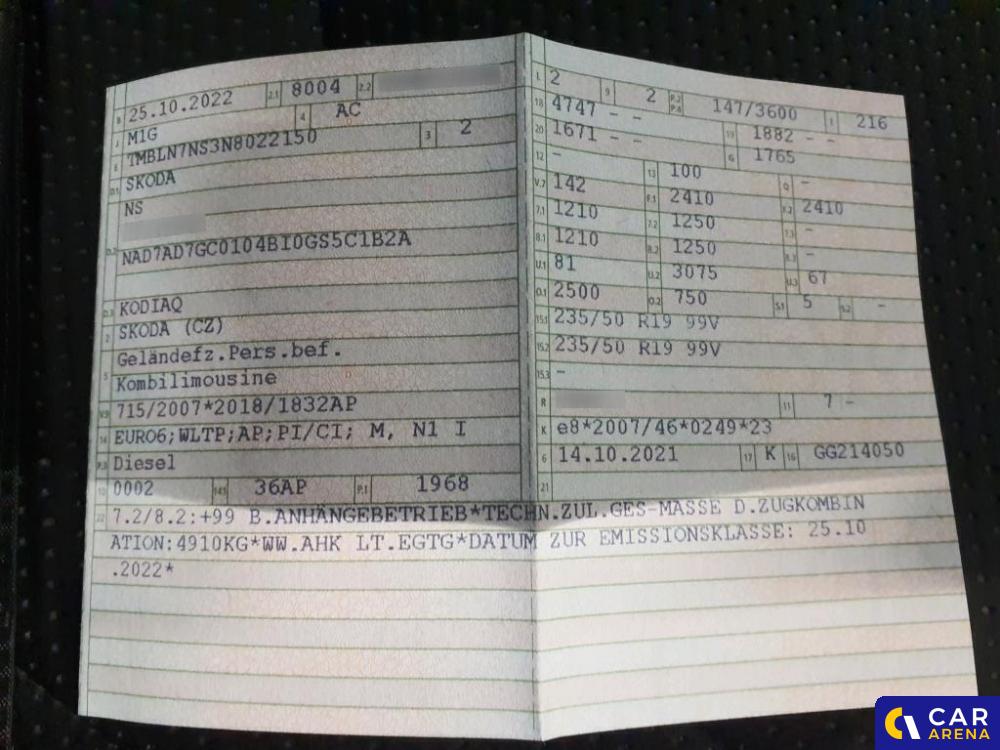 B 25.10.2022 2.1 8004 2.2
J M1G 4 AC
E TMBLN7NS3N8022150 3 2
D.1 SKODA
NS
D.2
NAD7AD7GC0104BI0GS5C1B2A
D.3 KODIAQ
2 SKODA (CZ)
Geländefz.Pers.bef.
5 Kombilimousine
V.9 715/2007*2018/1832AP
14 EURO6;WLTP;AP;PI/CI; M, N1 I
P.3 Diesel
10 0002 14.1 36AP P.1 1968
L 2 9 2 P.2 P.4 147/3600 T 216
18 4747 - - 19 1882 - -
20 1671 - - G 1765
12 - 13 100 Q -
V.7 142 F.1 2410 F.2 2410
7.1 1210 7.2 1250 7.3 -
8.1 1210 8.2 1250 8.3 -
U.1 81 U.2 3075 U.3 67
O.1 2500 O.2 750 S.1 5 S.2 -
15.1 235/50 R19 99V
15.2 235/50 R19 99V
15.3 -
R 11 7 -
K e8*2007/46*0249*23
6 14.10.2021 17 K 16 GG214050
21
22 7.2/8.2:+99 B.ANHÄNGEBETRIEB*TECHN.ZUL.GES-MASSE D.ZUGKOMBIN
ATION:4910KG*WW.AHK LT.EGTG*DATUM ZUR EMISSIONSKLASSE: 25.10
.2022*
CAR
ARENA